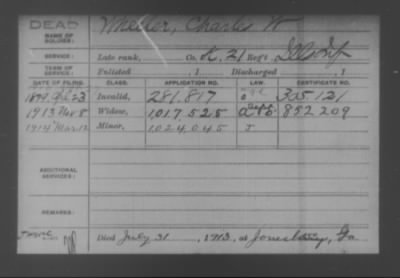 DEAD
NAME OF SOLDIER:
Wheeler, Charles W
SERVICE: Late rank, Co. K, 21 Reg't Ill Inf
TERM OF SERVICE: Enlisted , 1 Discharged , 1
DATE OF FILING. CLASS. APPLICATION NO. LAW. CERTIFICATE NO.
1879 23 Invalid, 281.817 305121
1913 Nov 8 Widow, 1,017.525 852209
1914 Mar. 12 Minor, 1,024,045
ADDITIONAL SERVICES:
REMARKS:
Died July 31, 1913, at Jonesboro, Ga